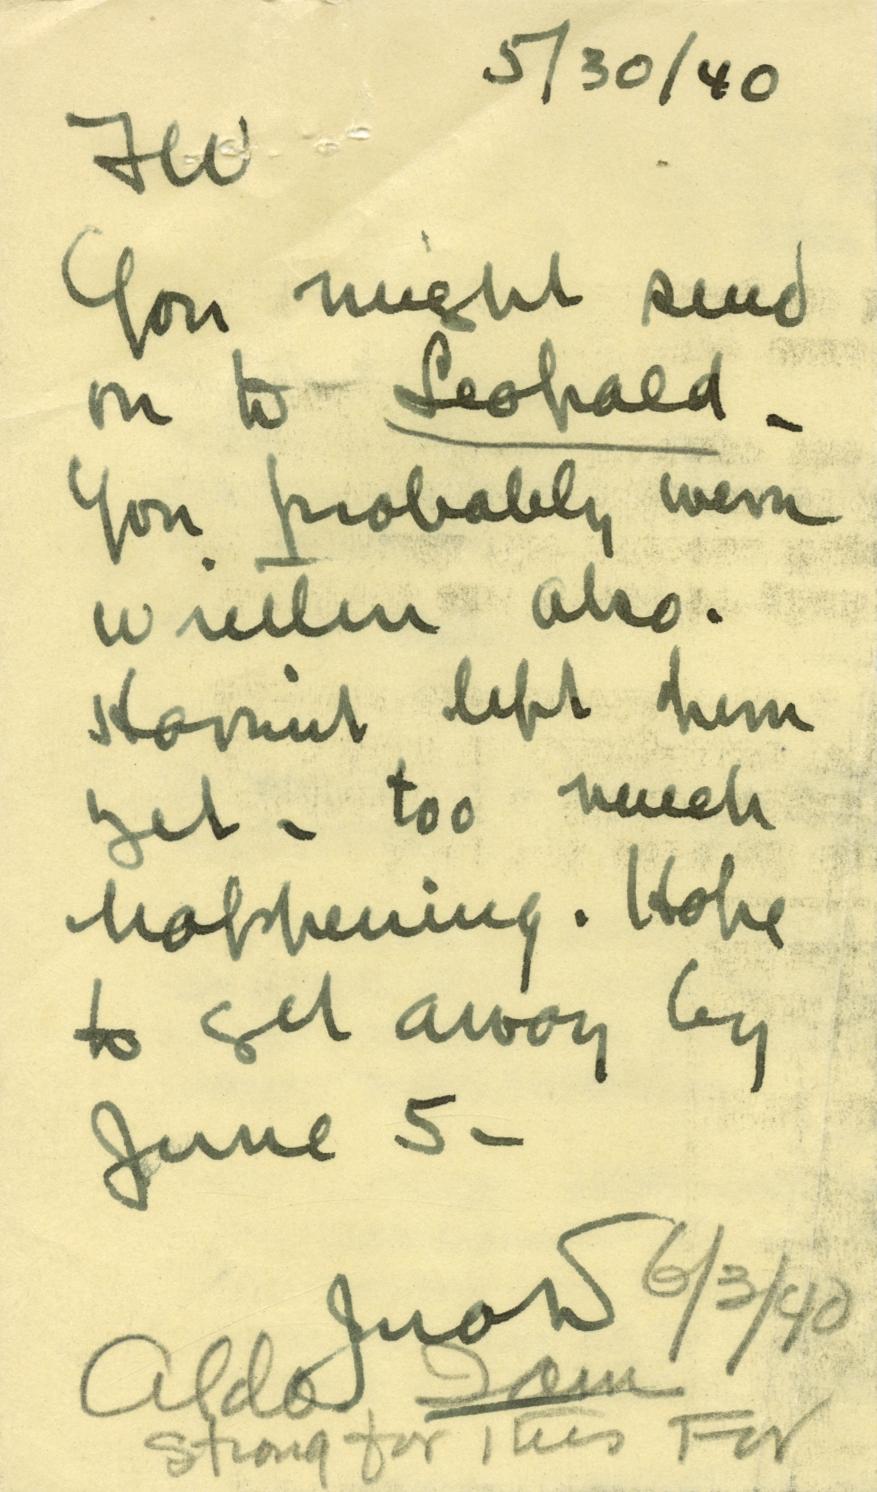 5/30/40
FW
You might send
on to Leopold -
You probably were
written also.
Haven't left here
yet - too much
happening. Hope
to get away by
June 5 -
JnoW 6/3/40
Aldo I am
strong for this FW